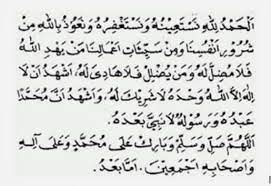 اَلْحَمْدُ لِلّٰهِ نَسْتَعِيْنُهُ وَنَسْتَغْفِرُهُ وَنَعُوْذُ بِاللّٰهِ مِنْ
شُرُوْرِ اَنْفُسِنَا وَمِنْ سَيِّئَاتِ اَعْمَالِنَا مَنْ يَهْدِ اللّٰهُ
فَلَا مُضِلَّ لَهُ وَمَنْ يُضْلِلْ فَلَا هَادِيَ لَهُ ، اَشْهَدُ اَنْ لَا
اِلٰهَ اِلَّا اللّٰهُ وَحْدَهُ لَا شَرِيْكَ لَهُ ، وَاَشْهَدُ اَنَّ مُحَمَّدًا
عَبْدُهُ وَرَسُوْلُهُ لَا نَبِيَّ بَعْدَهُ .
اَللّٰهُمَّ صَلِّ وَسَلِّمْ وَبَارِكْ عَلَى مُحَمَّدٍ وَعَلَى اٰلِهِ
وَاَصْحَابِهِ اَجْمَعِيْنَ ، اَمَّا بَعْدُ .